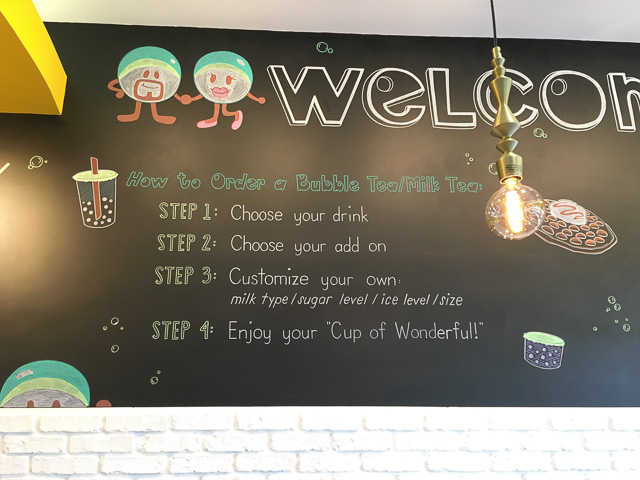 WELCOM
How to Order a Bubble Tea/Milk Tea:
STEP 1: Choose your drink
STEP 2: Choose your add on
STEP 3: Customize your own:
milk type/sugar level / ice level/size
STEP 4: Enjoy your "Cup of Wonderful!"